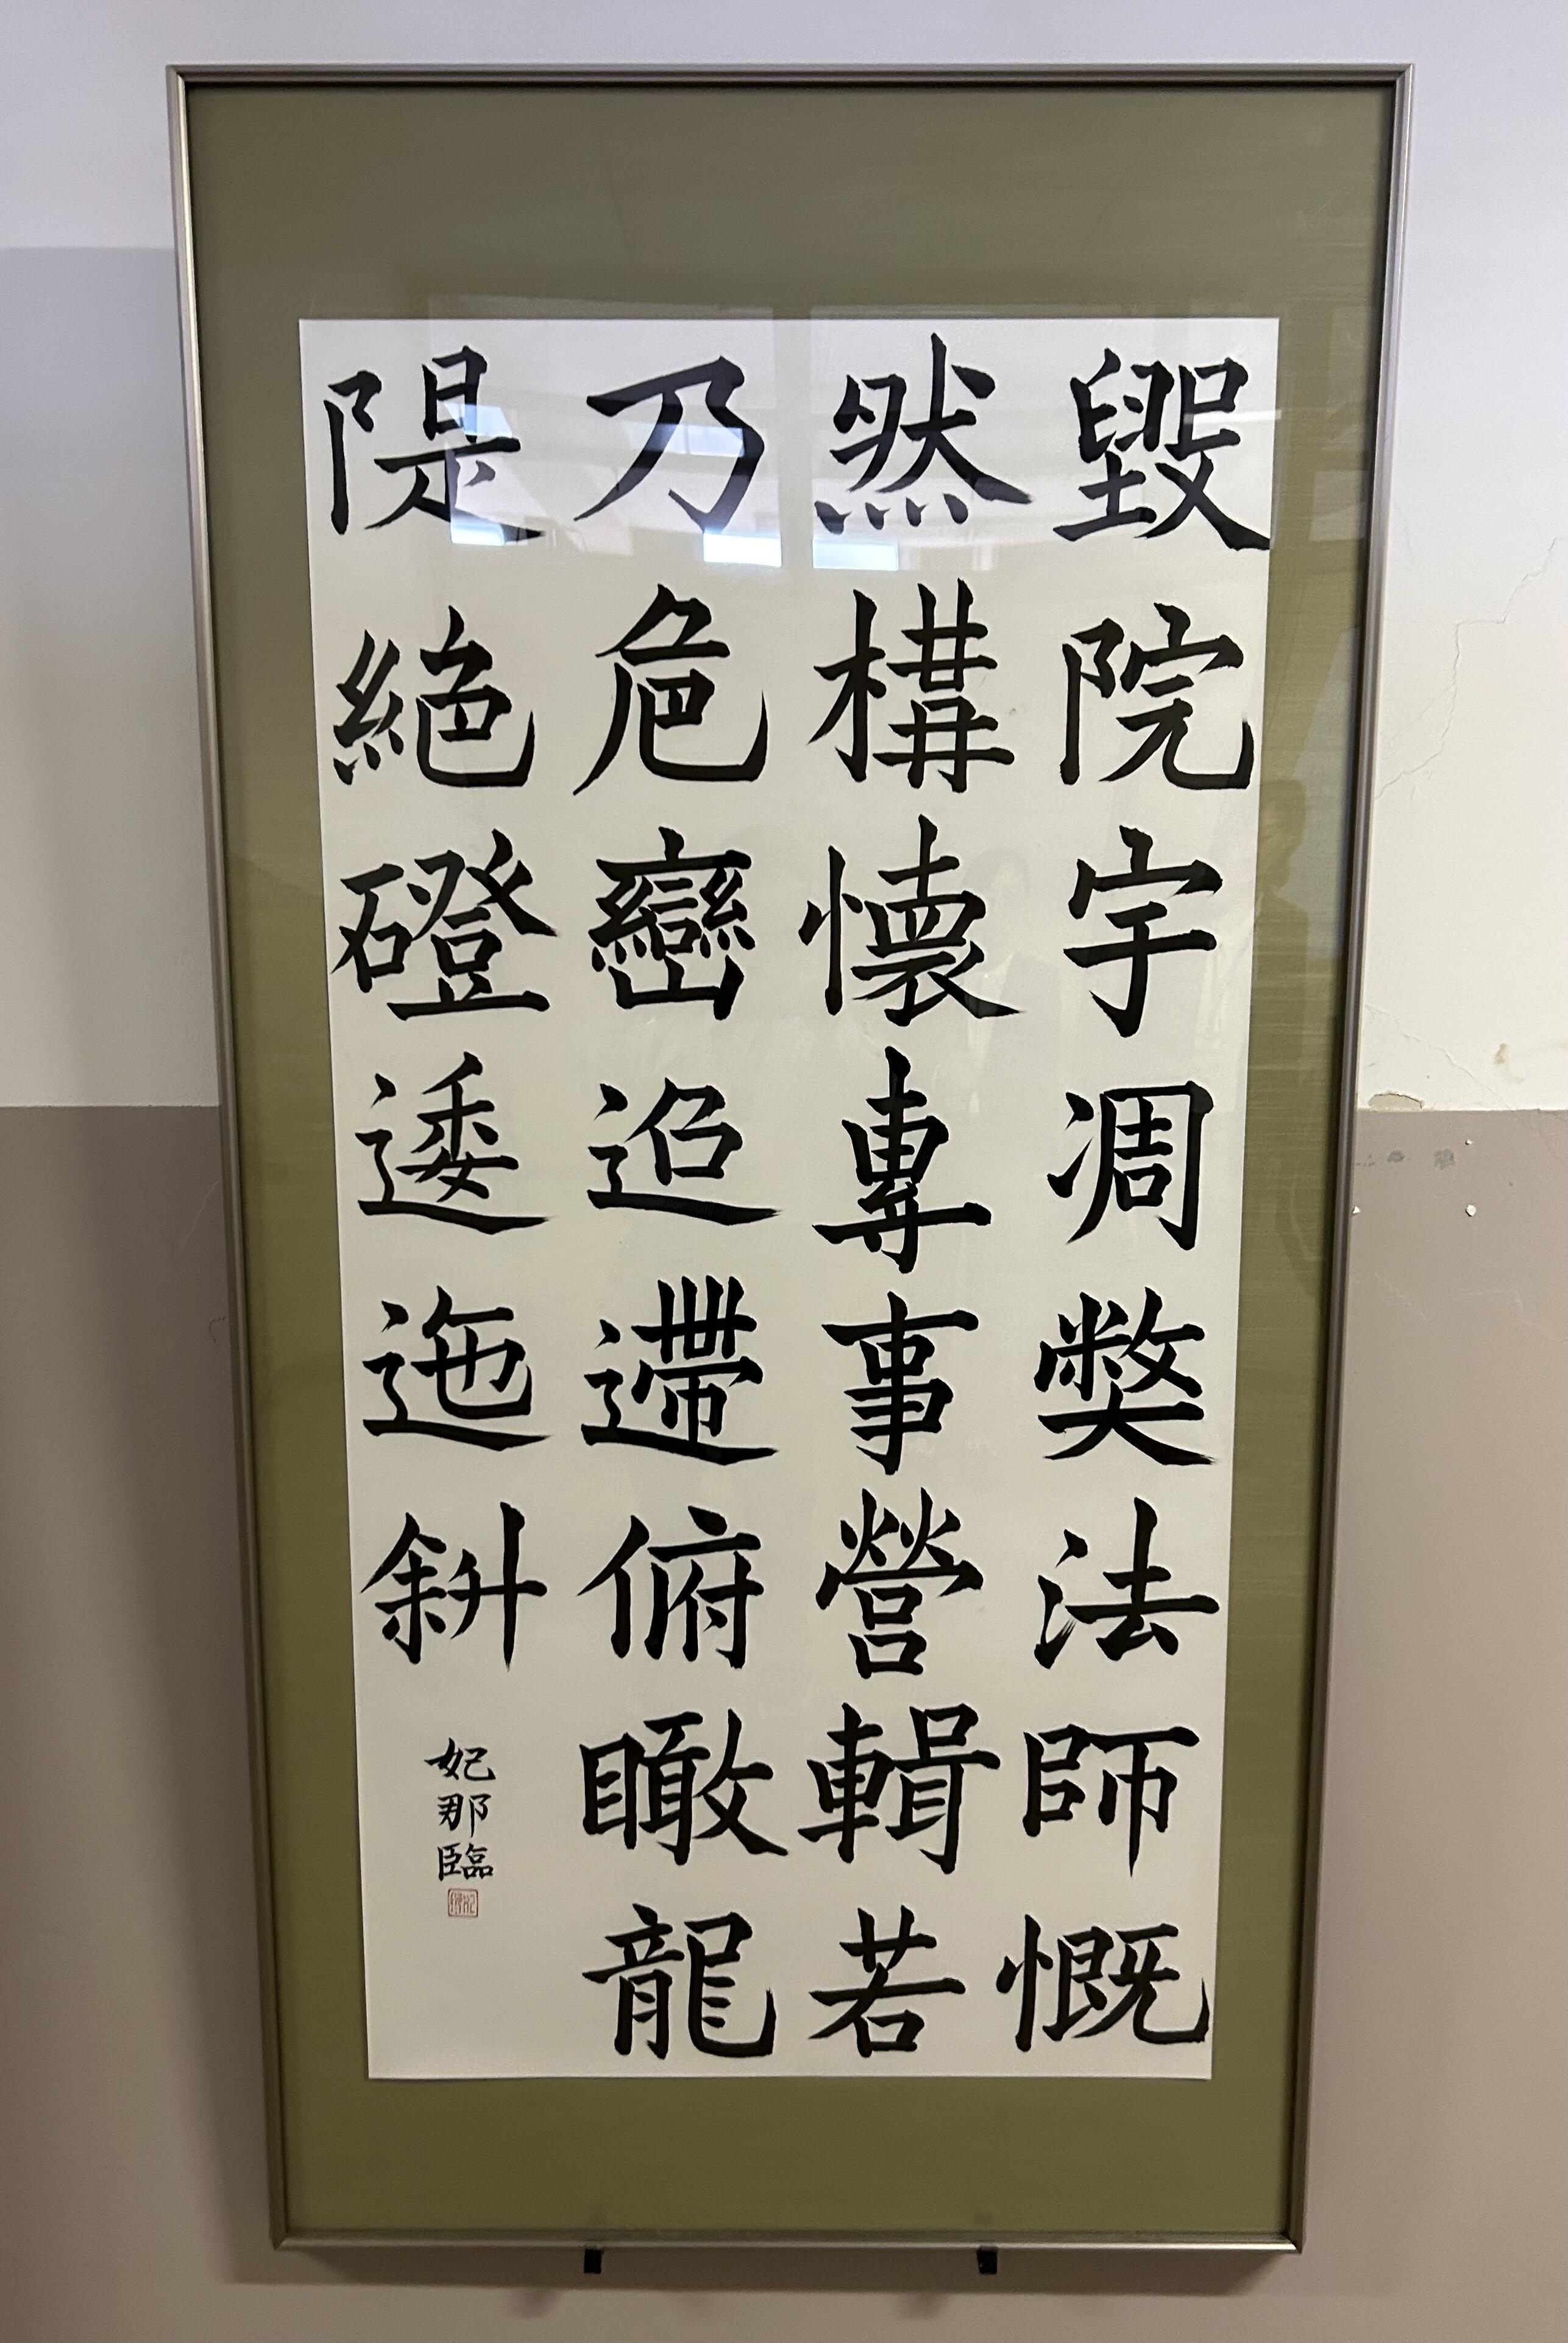 毀院宇凋弊法師慨
然構懐專事營輯若
乃危巒迢遰俯瞰龍
隄絶磴逶迤斜
妃那臨